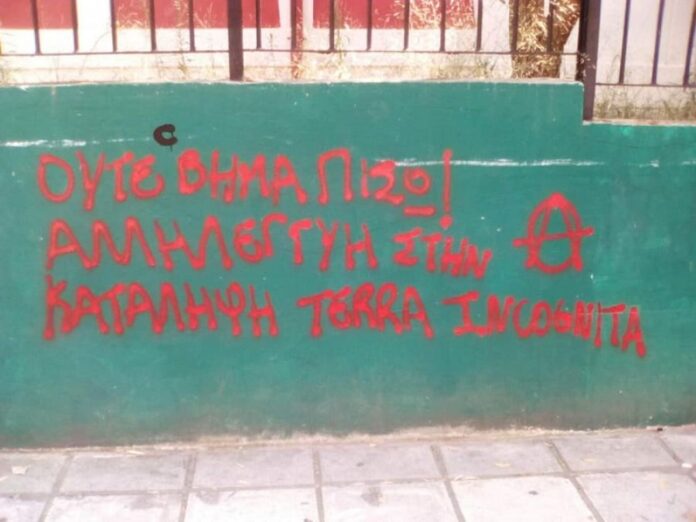 C
ΟΥΤΕ ΒΗΜΑ ΠΙΣΩ!
ΑΛΛΗΛΕΓΓΥΗ ΣΤΗΝ
ΚΑΤΑΛΗΨΗ TERRA INCOGNITA